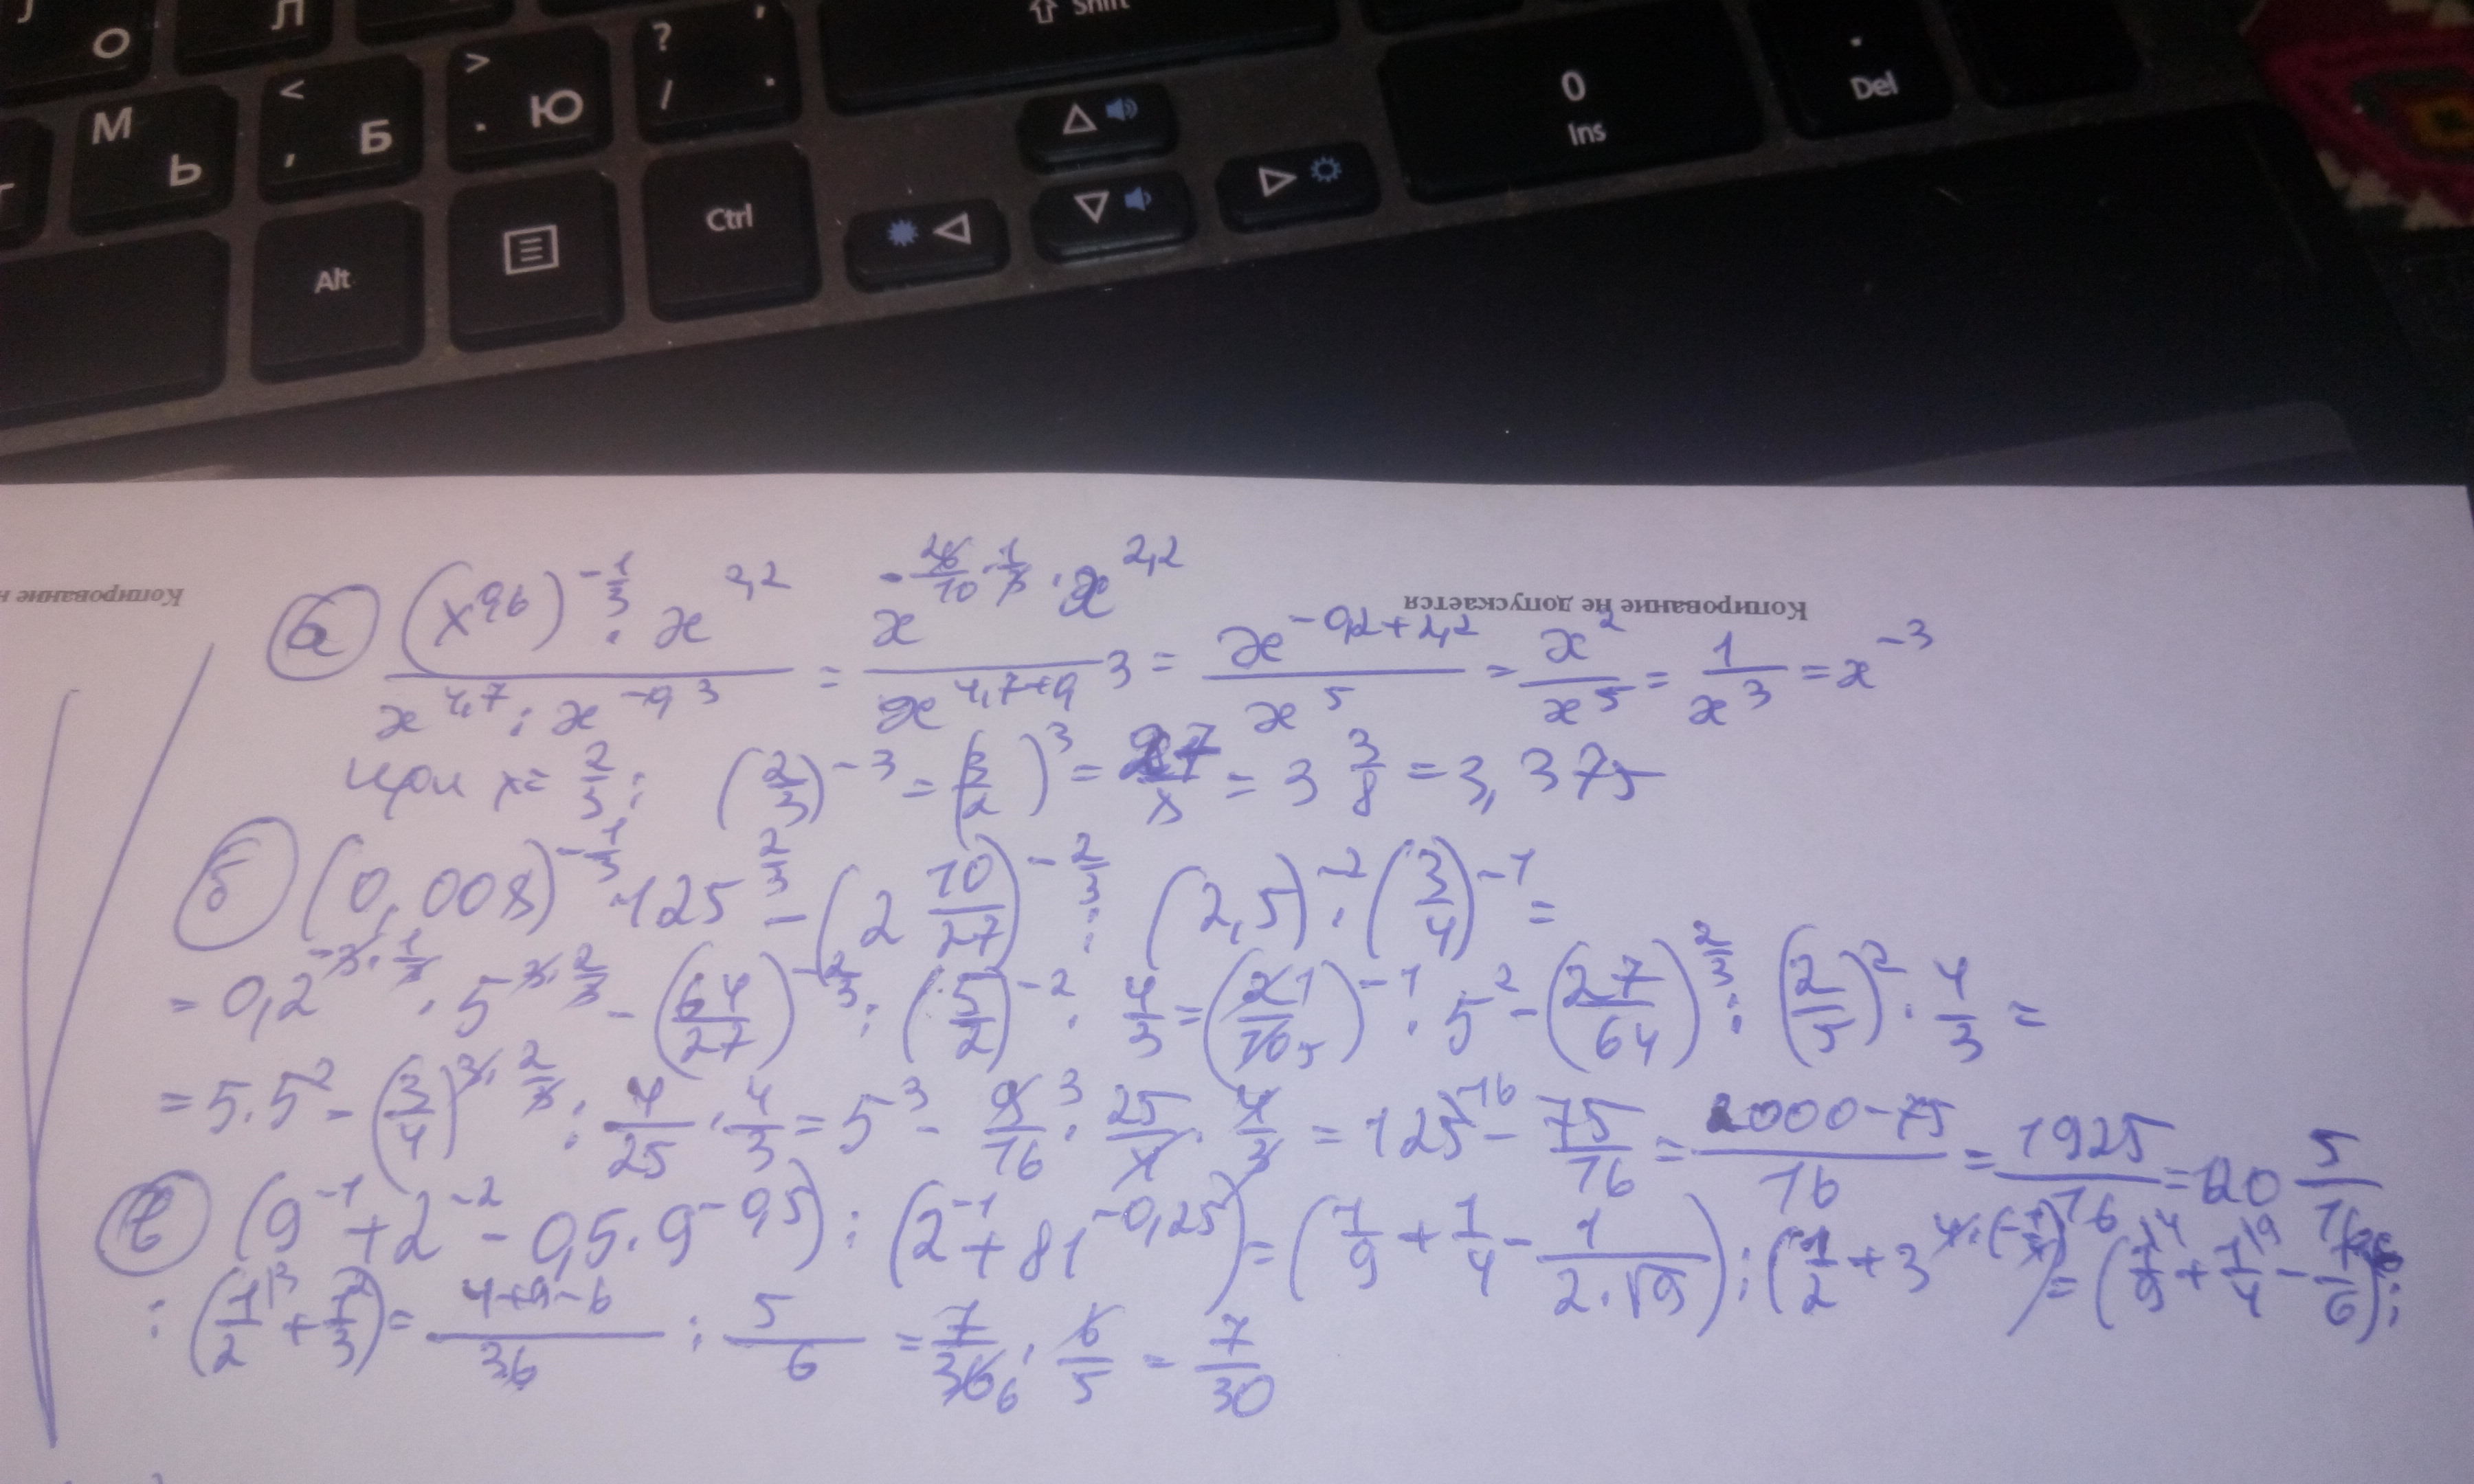 Л
О
Shift
М
Ь
<
,
Б
>
.
Ю
?
/
0
Ins
Del
Alt
Ctrl
Копирование не допускается
Копирование
а) (x^0,6)^(-1/3) · x^2,2 / (x^4,7 : x^-0,3) = x^(-0,6/10 · 1/3) · x^2,2 / x^(4,7+0,3) = x^(-0,2+2,2) / x^5 = x^2/x^5 = 1/x^3 = x^-3
при x = 2/3 : (2/3)^-3 = (3/2)^3 = 27/8 = 3 3/8 = 3,375
б) (0,008)^(-1/3) · 125^(2/3) - (2 10/27)^(-2/3) : (2,5)^-2 · (3/4)^-1 =
= 0,2^(-3·1/3) · 5^(3·2/3) - (64/27)^(-2/3) : (5/2)^-2 · 4/3 = (2 1/10 5)^-1 · 5^2 - (27/64)^(2/3) : (2/5)^2 · 4/3 =
= 5·5^2 - (3/4)^(3·2/3) : 4/25 · 4/3 = 5^3 - 9/16 · 25/4 · 4/3 = 125 - 75/16 = 2000-75/16 = 1925/16 = 120 5/16
(9^-1 + 2^-2 - 0,5·9^-0,5) : (2^-1 + 81^-0,25) = (1/9 + 1/4 - 1/(2·√9)) : (1/2 + 3^(4·(-1/4))) = (1/9 + 1/4 - 1/6) :
: (1/2 + 1/3) = 4+9-6/36 : 5/6 = 7/36 · 6/5 = 7/30